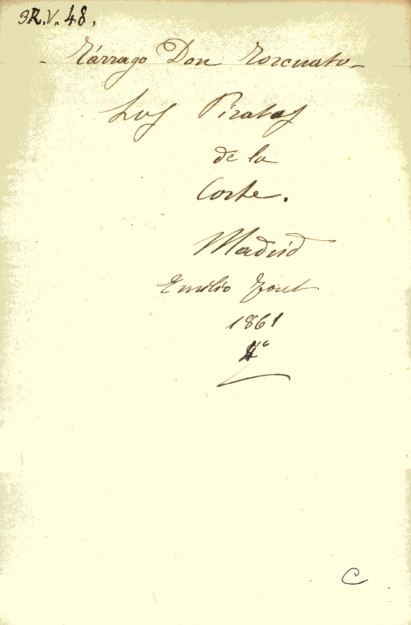 R.V. 48.
- Tárrago Don Torcuato -
Los Piratas
de la
Corte.
Madrid
Emilio Font
1861
4º
C